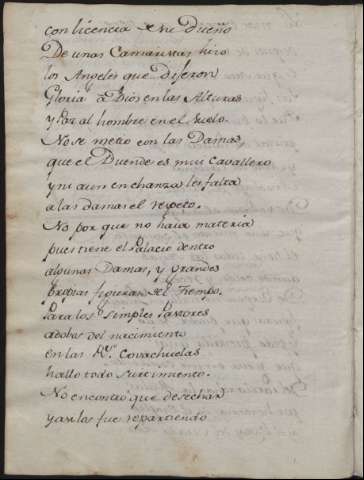 con licencia de su Dueño
De unas Camaristas hizo
los Angeles que Dijeron
Gloria a Dios en las Alturas
y Paz al hombre en el suelo.
No se metio con las Damas,
que el Duende es mui cavallero
y ni aun en chanza les falta
a las damas el respeto.
No por que no haia materia
pues tiene el Palacio dentro
algunas Damas, y grandes
propias figuras del Tiempo.
Para los simples Pastores
adobes del nacimiento
en las Rs. Covachuelas
hallo todo surtimiento.
No encontro que desechar
y asi los fue repartiendo